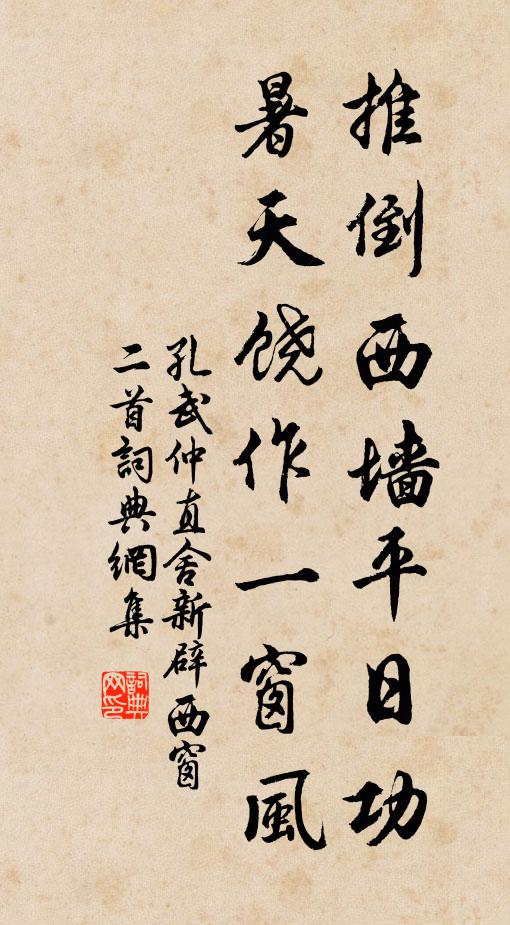 推倒西墙平日功
暑天饶作一窗風
孔武仲直舍新辟西窗
二首詞典網集
詞典
网印